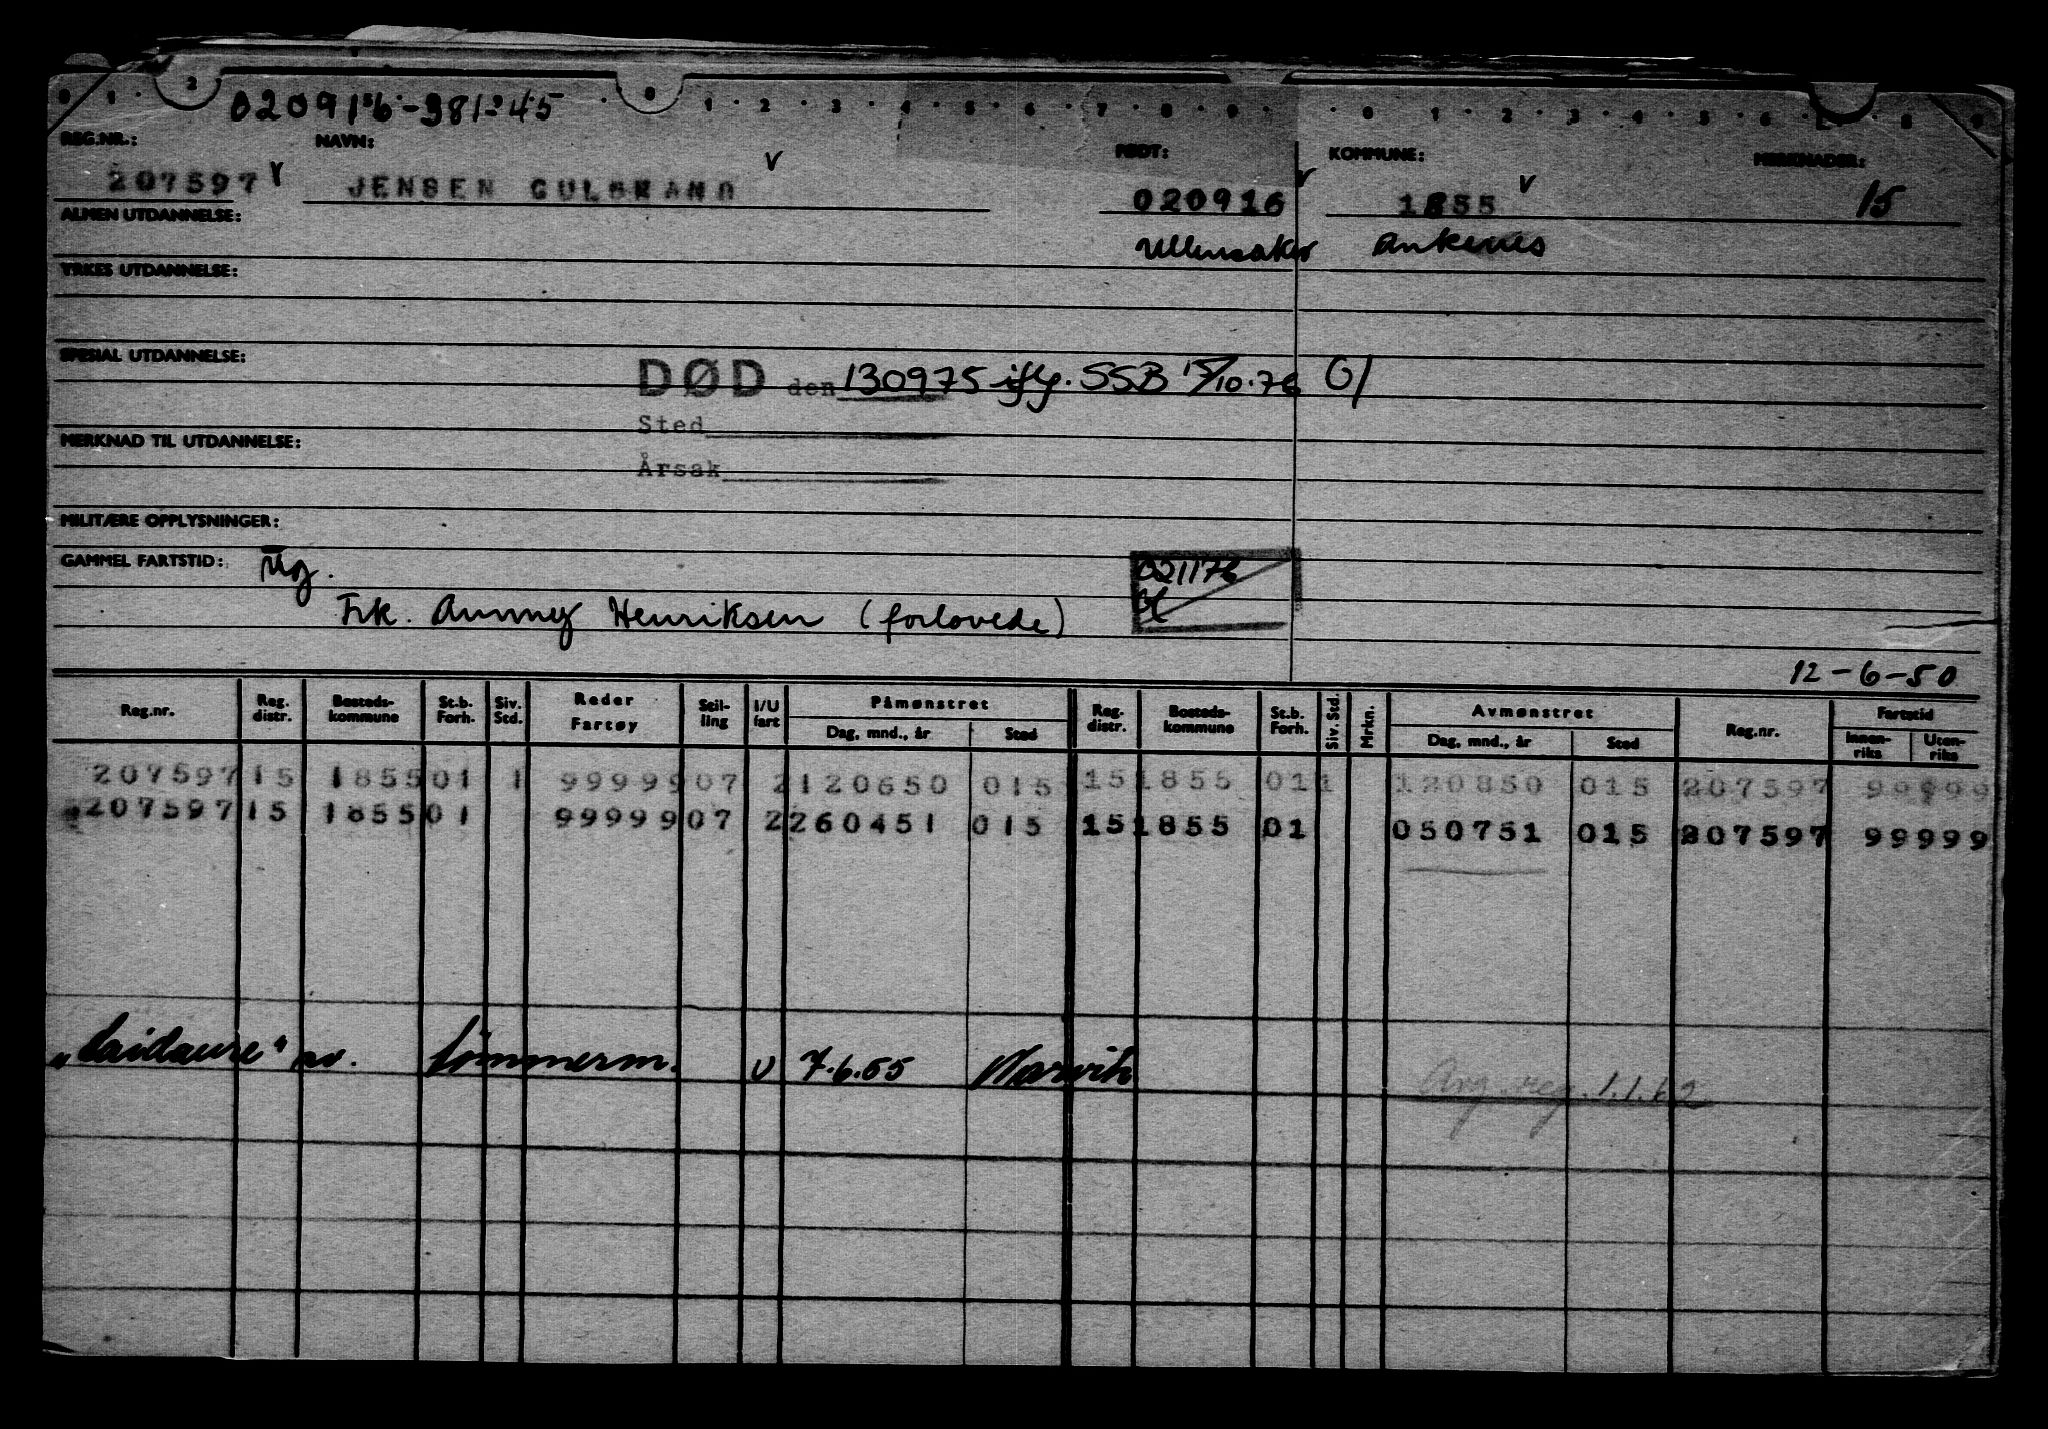 0 1 · 2 · 0 · 1 · 2 · 3 · 4 · 5 · 6 · 7 · 8 · 9 · 0 · 1 · 2 · 3 · 4 · 5 · 6 · 8 9
020916-98145
REG.NR.: NAVN: FØDT: KOMMUNE: MERKNADER:
207597 v JENSEN GULBRAND v 020916 v 1855 v 15
ALMEN UTDANNELSE: Ullensaker Ankenes
YRKES UTDANNELSE:
SPESIAL UTDANNELSE:
DØD den 130975 iflg. SSB 15/10.76 G/
Sted
MERKNAD TIL UTDANNELSE:
Årsak
MILITÆRE OPPLYSNINGER:
GAMMEL FARTSTID: 021176
Frk. Anny Henriksen (forlovede)
12-6-50
Reg.nr. Reg. distr. Bosteds-kommune St.b. Forh. Siv. Std. Reder Fartøy Stil-ling I/U fart Påmønstret Dag, mnd., år Sted Reg. distr. Bosteds-kommune St.b. Forh. Siv. Std. Mrkn. Avmønstret Dag, mnd., år Sted Reg.nr. Fartstid Innen-riks Uten-riks
207597 15 1855 01 1 99999 07 2 120650 015 15 1855 01 1 120850 015 207597 99999
207597 15 1855 01 99999 07 2 260451 015 15 1855 01 050751 015 207597 99999
„Laidaure" av. tømmerm. U 7.6.55 Narvik
Avg. reg. 1.1.62